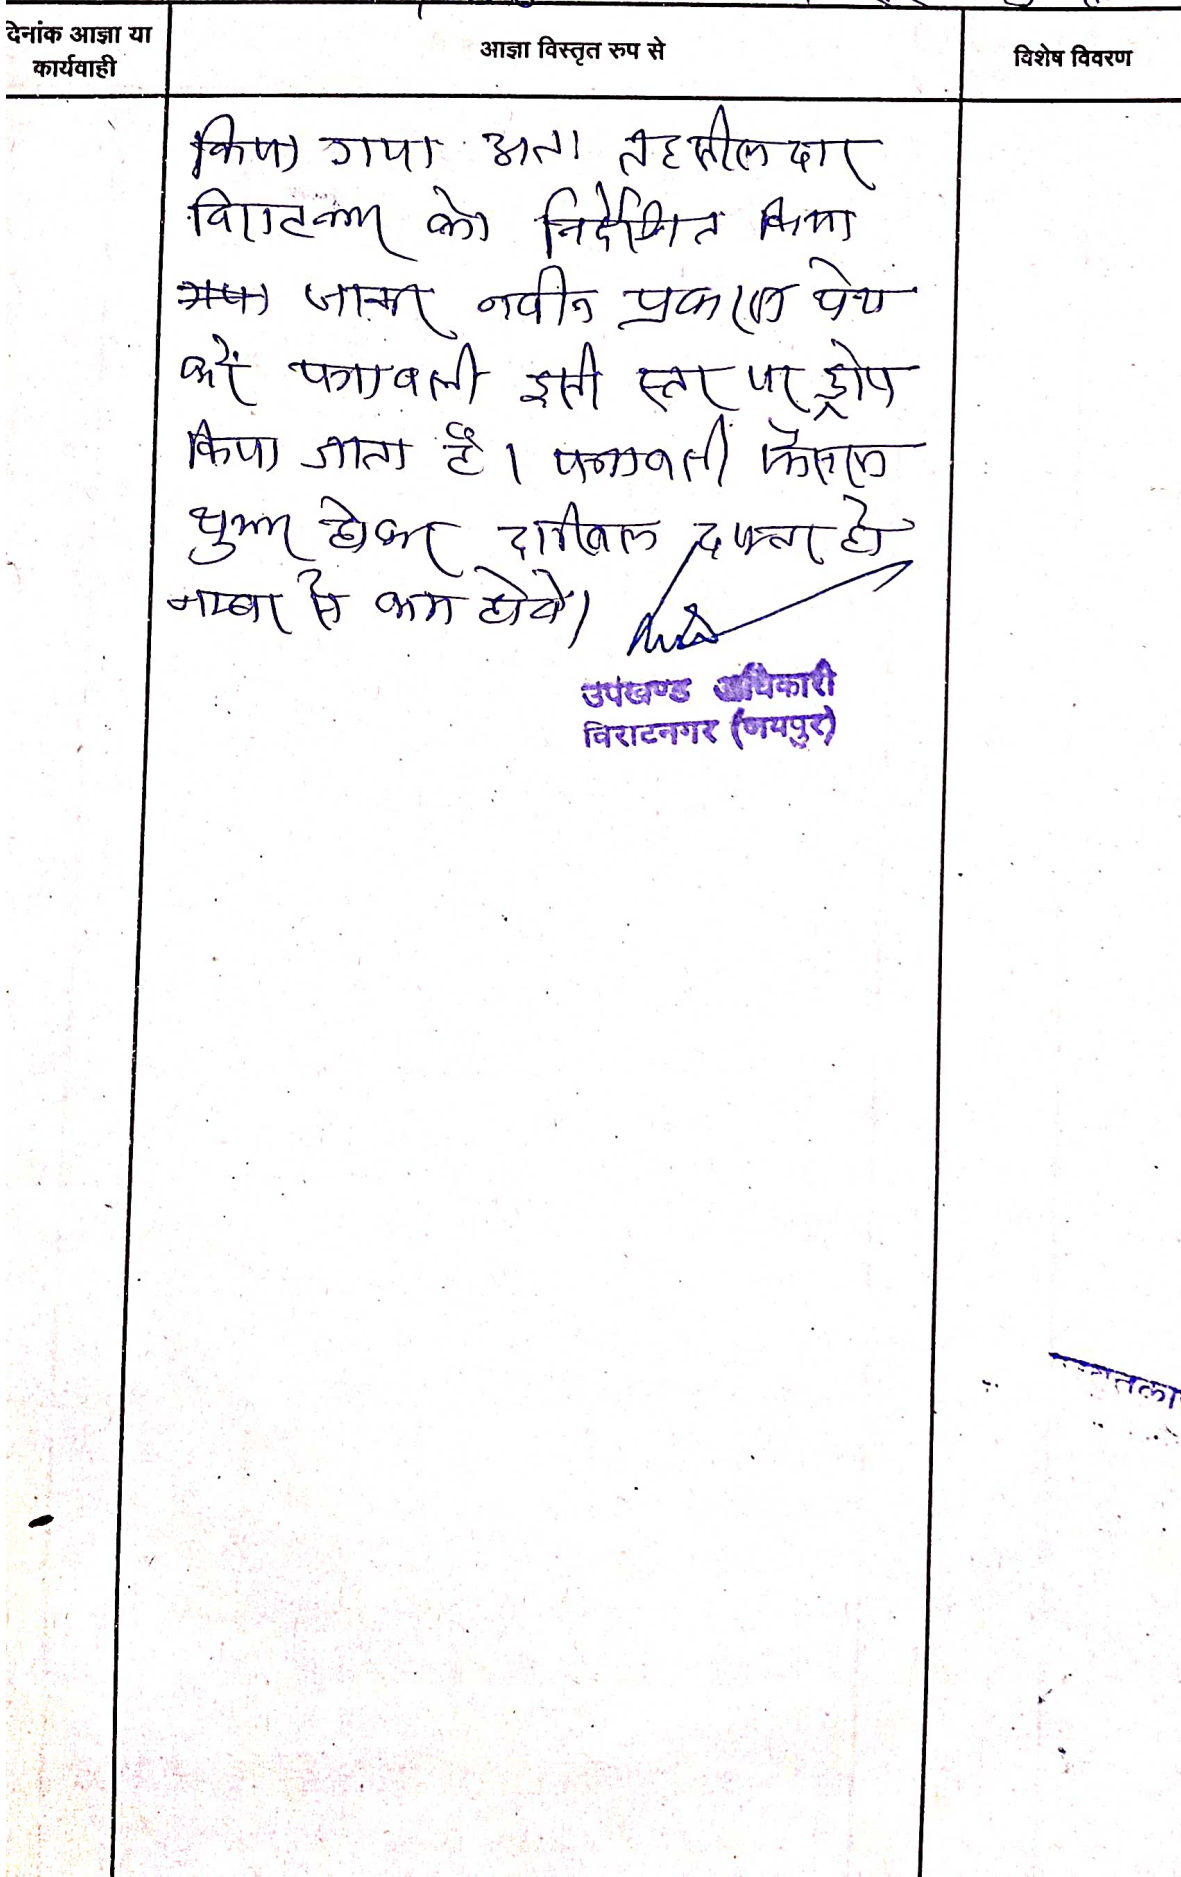 दिनांक आज्ञा या
कार्यवाही
आज्ञा विस्तृत रुप से
विशेष विवरण
किया गया अतः तहसीलदार
विराटनगर को निर्देशित किया
गया जाकर नवीन प्रकरण पेश
करें पत्रावली इसी स्तर पर ड्रोप
किया जाता है। पत्रावली फैसल
शुमार होकर दाखिल दफ्तर हो
नम्बर से कम होवे।
उपखण्ड अधिकारी
विराटनगर (जयपुर)